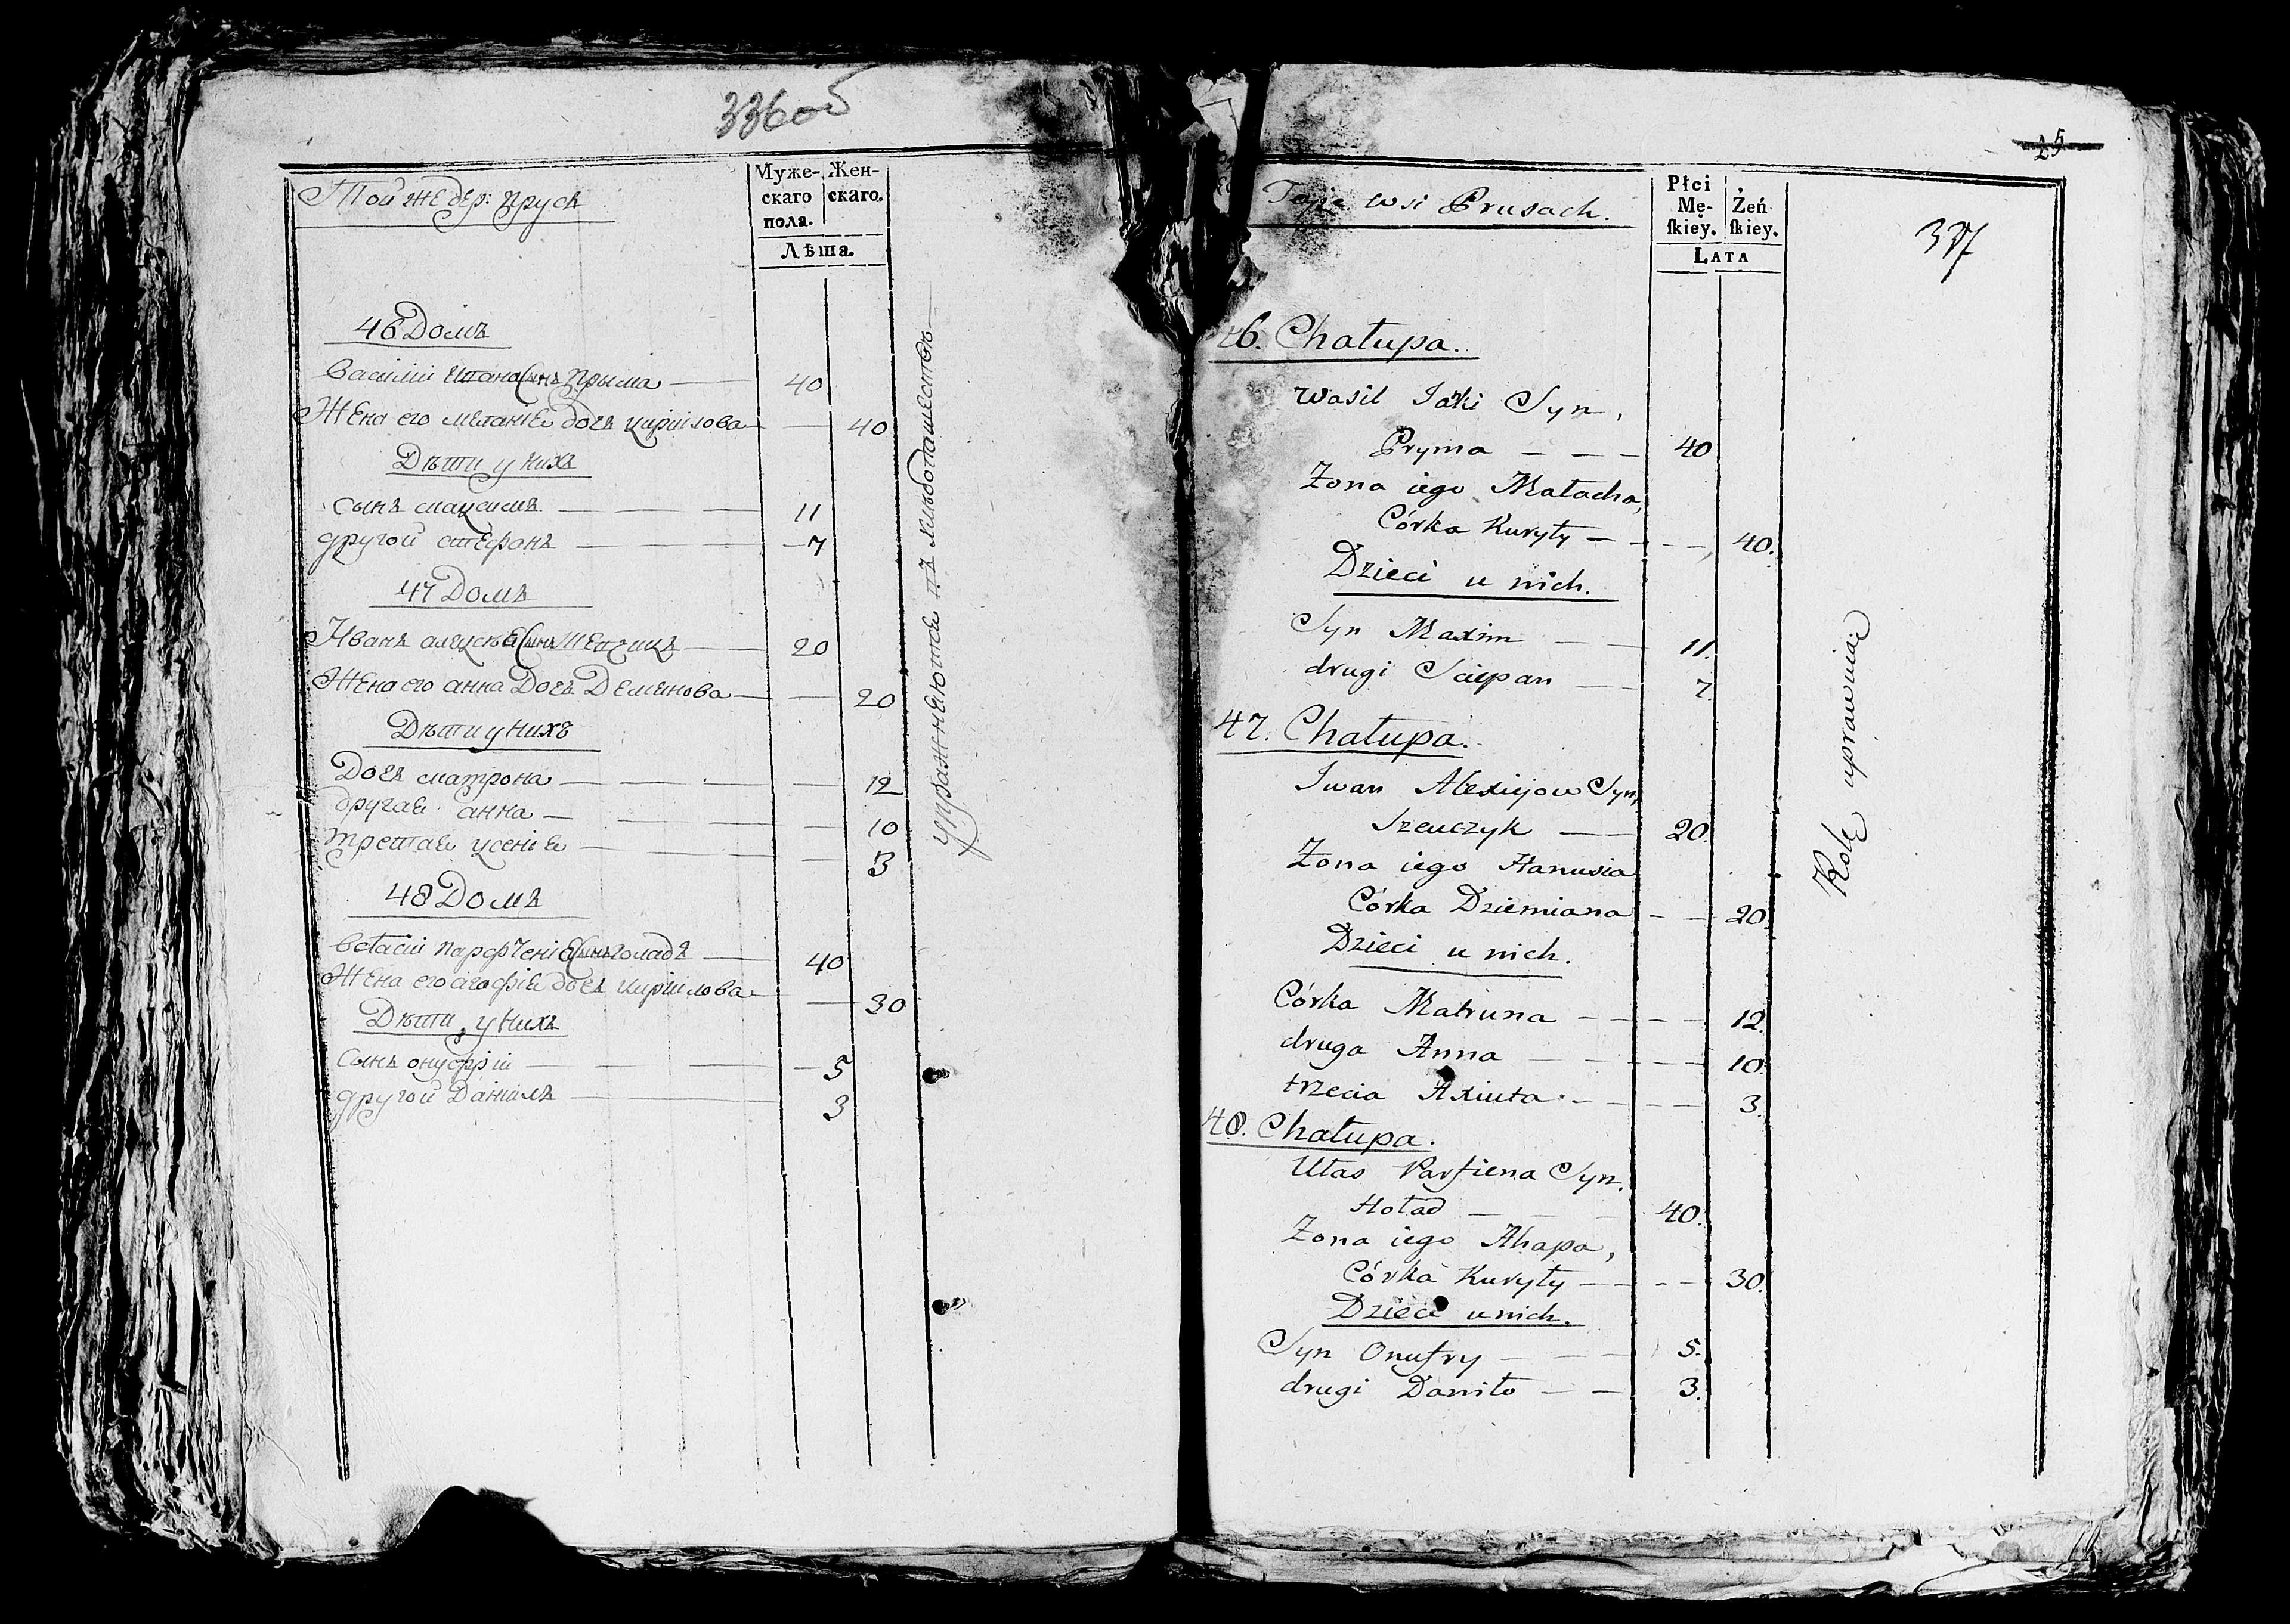 336 об
Той же дер: Прусъ
Муже-
скаго
пола.
Жен-
скаго.
Лѣта.
46 Домъ
Василий Сынъ Прыма 40
Жена его Мелания дочь Кирилова 40
Дѣти у нихъ
Сынъ Максимъ 11
другой Стефанъ 7
47 Домъ
Иванъ Алексѣя Сынъ Шевчикъ 20
Жена его Анна Дочь Деменова 20
Дѣти у нихъ
Дочь Матрона 12
другая Анна 10
третая Ксения 3
48 Домъ
Власий Парфчения Сынъ Голадъ 40
Жена его Агафия дочь Кирилова 30
Дѣти у нихъ
Сынъ Онуфрий 5
другой Данилъ 3
упражняются въ хлѣбопашествѣ
25
337
Tejże wsi Prusach.
Płci
Mę-
skiey.
Żeń
skiey.
Lata
46. Chałupa.
Wasil Syn,
Pryma 40
Żona iego Małacha,
Córka Kuryły 40.
Dzieci u nich.
Syn Maxim 11.
drugi Sciepan 7.
47. Chałupa.
Iwan Alexiejow Syn,
Szewczyk 20.
Żona iego Hanusia
Córka Dziemiana 20.
Dzieci u nich.
Córka Matruna 12.
druga Anna 10.
trzecia Axiuta 3.
48. Chałupa.
Ułas Parfiena Syn,
Hoład 40.
Żona iego Ahapa,
Córka Kuryły 30.
Dzieci u nich.
Syn Onufry 5.
drugi Daniło 3.
Rolę uprawuią